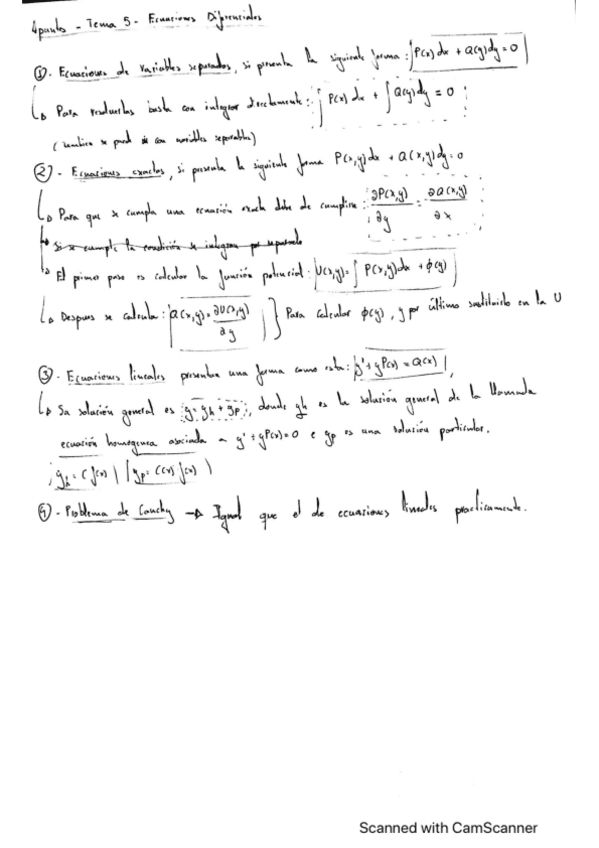 Apuntes - Tema 5 - Ecuaciones Diferenciales
①. Ecuaciones de variables separadas, si presenta la siguiente forma: P(x)dx + Q(y)dy = 0
↳ Para resolverlas basta con integrar directamente: ∫P(x)dx + ∫Q(y)dy = 0
( también se puede con variables separables)
②. - Ecuaciones exactas, si presenta la siguiente forma P(x,y)dx + Q(x,y)dy = 0
↳ Para que se cumpla una ecuación exacta debe de cumplirse: ∂P(x,y)/∂y = ∂Q(x,y)/∂x
↳ Si se cumple la condición se integran por separado
↳ El primer paso es calcular la función potencial: U(x,y) = ∫P(x,y)dx + ϕ(y)
↳ Despues se calcula: Q(x,y) = ∂U(x,y)/∂y } Para calcular ϕ(y), y por último sustituirlo en la U
③. - Ecuaciones lineales presentan una forma como esta: y' + yP(x) = Q(x),
↳ Sa solución general es y = yh + yp, donde yh es la solución general de la llamada
ecuación homogenea asociada a y' + yP(x) = 0 e yp es una solución particular.
yh = C f(x) | yp = C(x) f(x)
④. - Problema de Cauchy → Igual que el de ecuaciones lineales practicamente.
Scanned with CamScanner